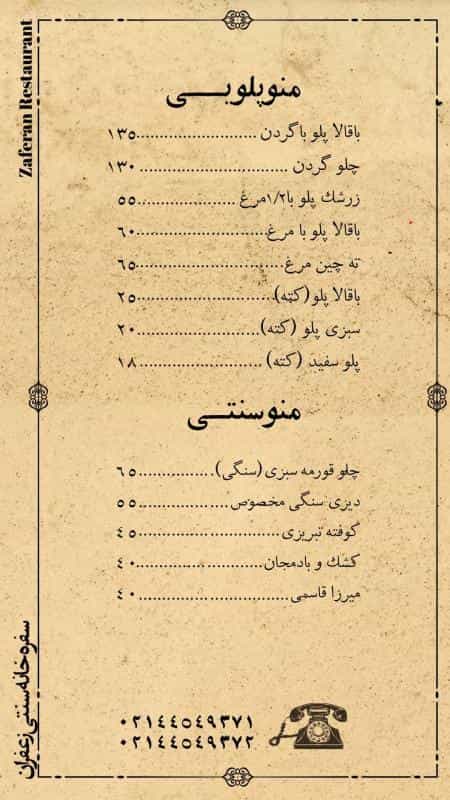 Zaferan Restaurant
منو پلویی
باقالا پلو باگردن ۱۳۵
چلو گردن ۱۳۰
زرشك پلو با۱/۲مرغ ۵۵
باقالا پلو با مرغ ٦۰
ته چین مرغ ٦۵
باقالا پلو(کته) ۲۵
سبزی پلو (کته) ۲۰
پلو سفید (کته) ۱۸
منو سنتی
چلو قورمه سبزی(سنگی) ٦۵
دیزی سنگی مخصوص ۵۵
کوفته تبریزی ٤۵
کشك و بادمجان ٤۰
میرزا قاسمی ٤۰
سفره‌خانه سنتی زعفران
۰۲۱٤٤۵٤۹۳۷۱
۰۲۱٤٤۵٤۹۳۷۲